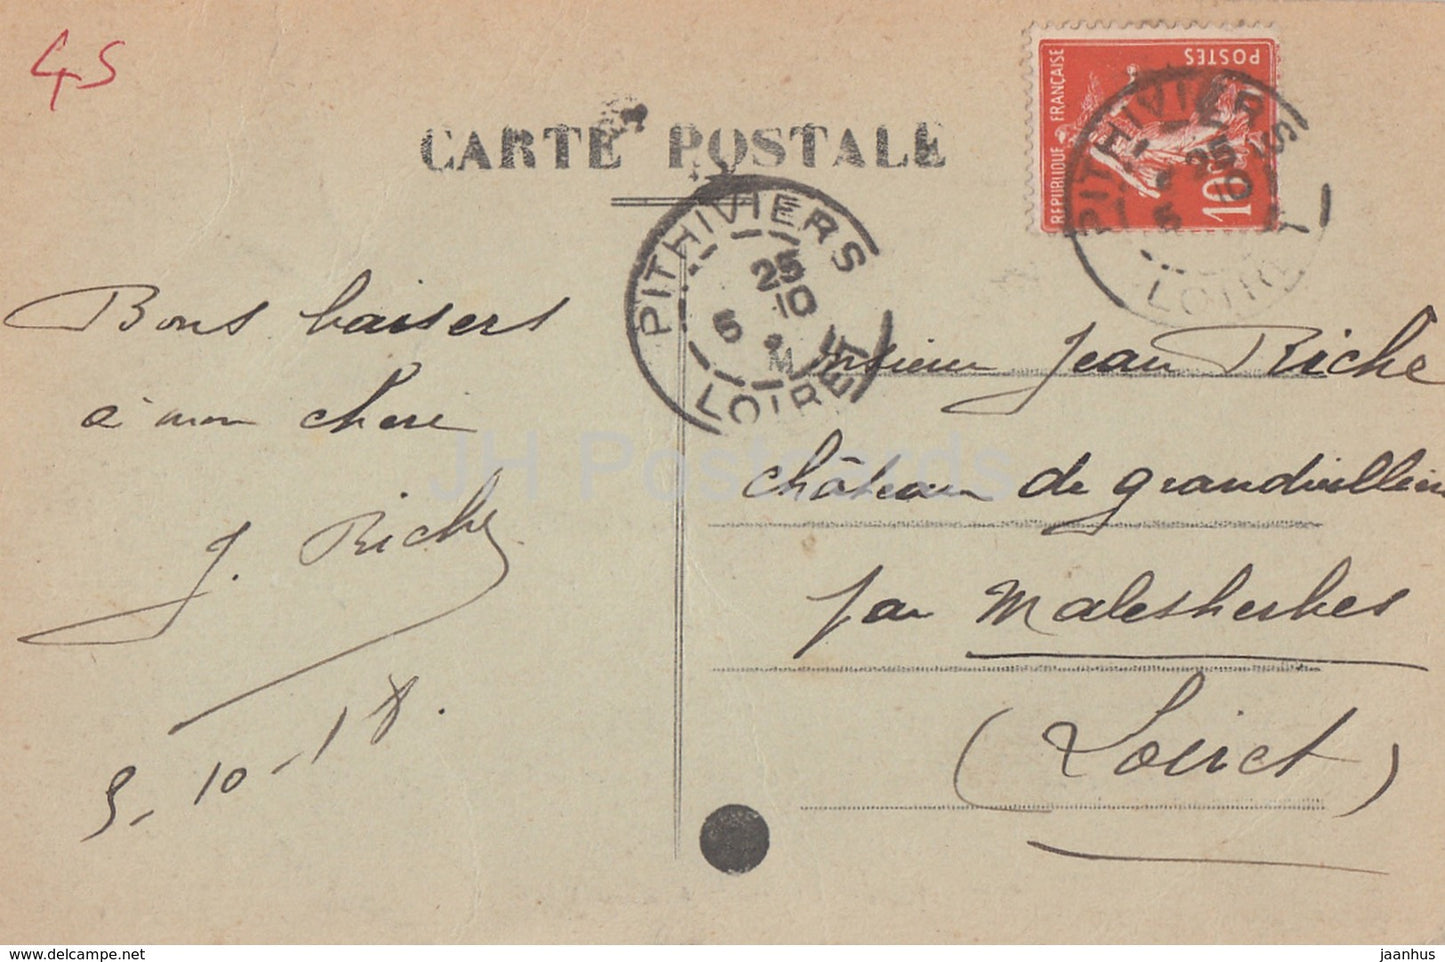 45
CARTE POSTALE
RÉPUBLIQUE FRANÇAISE
POSTES
10c
PITHIVIERS
25
10
5
LOIRET
PITHIVIERS
25
10
5
LOIRET
Bons baisers
à mon cheri
J. Riche
5-10-18.
Monsieur Jean Riche
château de grandvilliers
par Malesherbes
(Loiret)
JH Postcards
https://www.hip-postcard.com/store/jaanhus
jaanhus